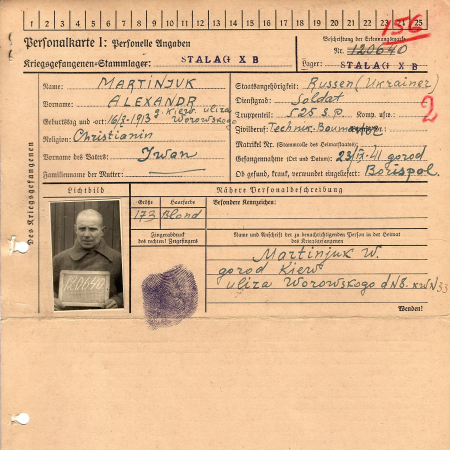 1 2 3 4 5 6 7 8 9 10 11 12 13 14 15 16 17 18 19 20 21 22 23 24 25
156
Personalkarte I: Personelle Angaben
Beschriftung der Erkennungsmarke
Nr. 120640
Kriegsgefangenen-Stammlager: STALAG X B
Lager: STALAG X B
Des Kriegsgefangenen
Name: MARTINJUK
Vorname: ALEXANDR
Geburtstag und -ort: 16/X-1913 g. Kiew. uliza Worowskogo
Religion: Christianin
Vorname des Vaters: Iwan
Familienname der Mutter:
Staatsangehörigkeit: Russen (Ukrainer)
Dienstgrad: Soldat
Truppenteil: 525 S.P. Komp. usw.:
2
Zivilberuf: Technik-Bau
Matrikel Nr. (Stammrolle des Heimatstaates)
Gefangennahme (Ort und Datum): 23/IX-41 gorod
Ob gesund, krank, verwundet eingeliefert: Borispol.
Lichtbild
Nähere Personalbeschreibung
Größe
Haarfarbe
Besondere Kennzeichen:
173
Blond
Fingerabdruck
des rechten! Zeigefingers
Name und Anschrift der zu benachrichtigenden Person in der Heimat
des Kriegsgefangenen
120640
Martinjuk W.
gorod Kiew
uliza Worowskogo d N8. kw N33
Wenden!